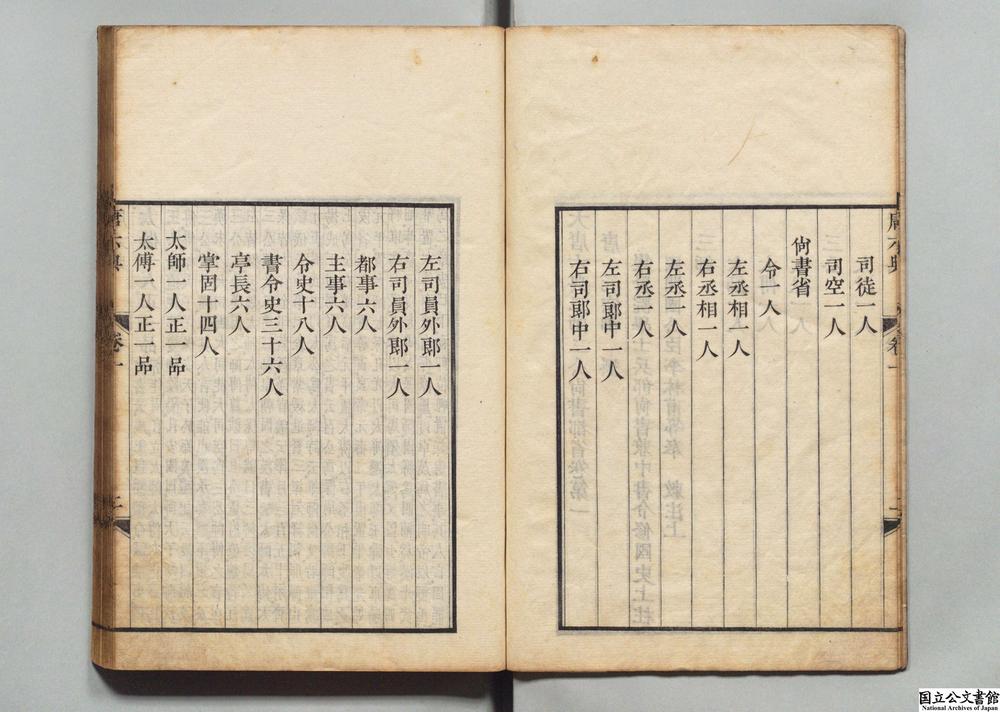 司徒一人
司空一人
尙書省
令一人
左丞相一人
右丞相一人
左丞一人
右丞一人
左司郎中一人
右司郎中一人
唐六典 卷一 二
左司員外郎一人
右司員外郎一人
都事六人
主事六人
令史十八人
書令史三十六人
亭長六人
掌固十四人
太師一人正一品
太傅一人正一品
唐六典 卷一
国立公文書館
National Archives of Japan